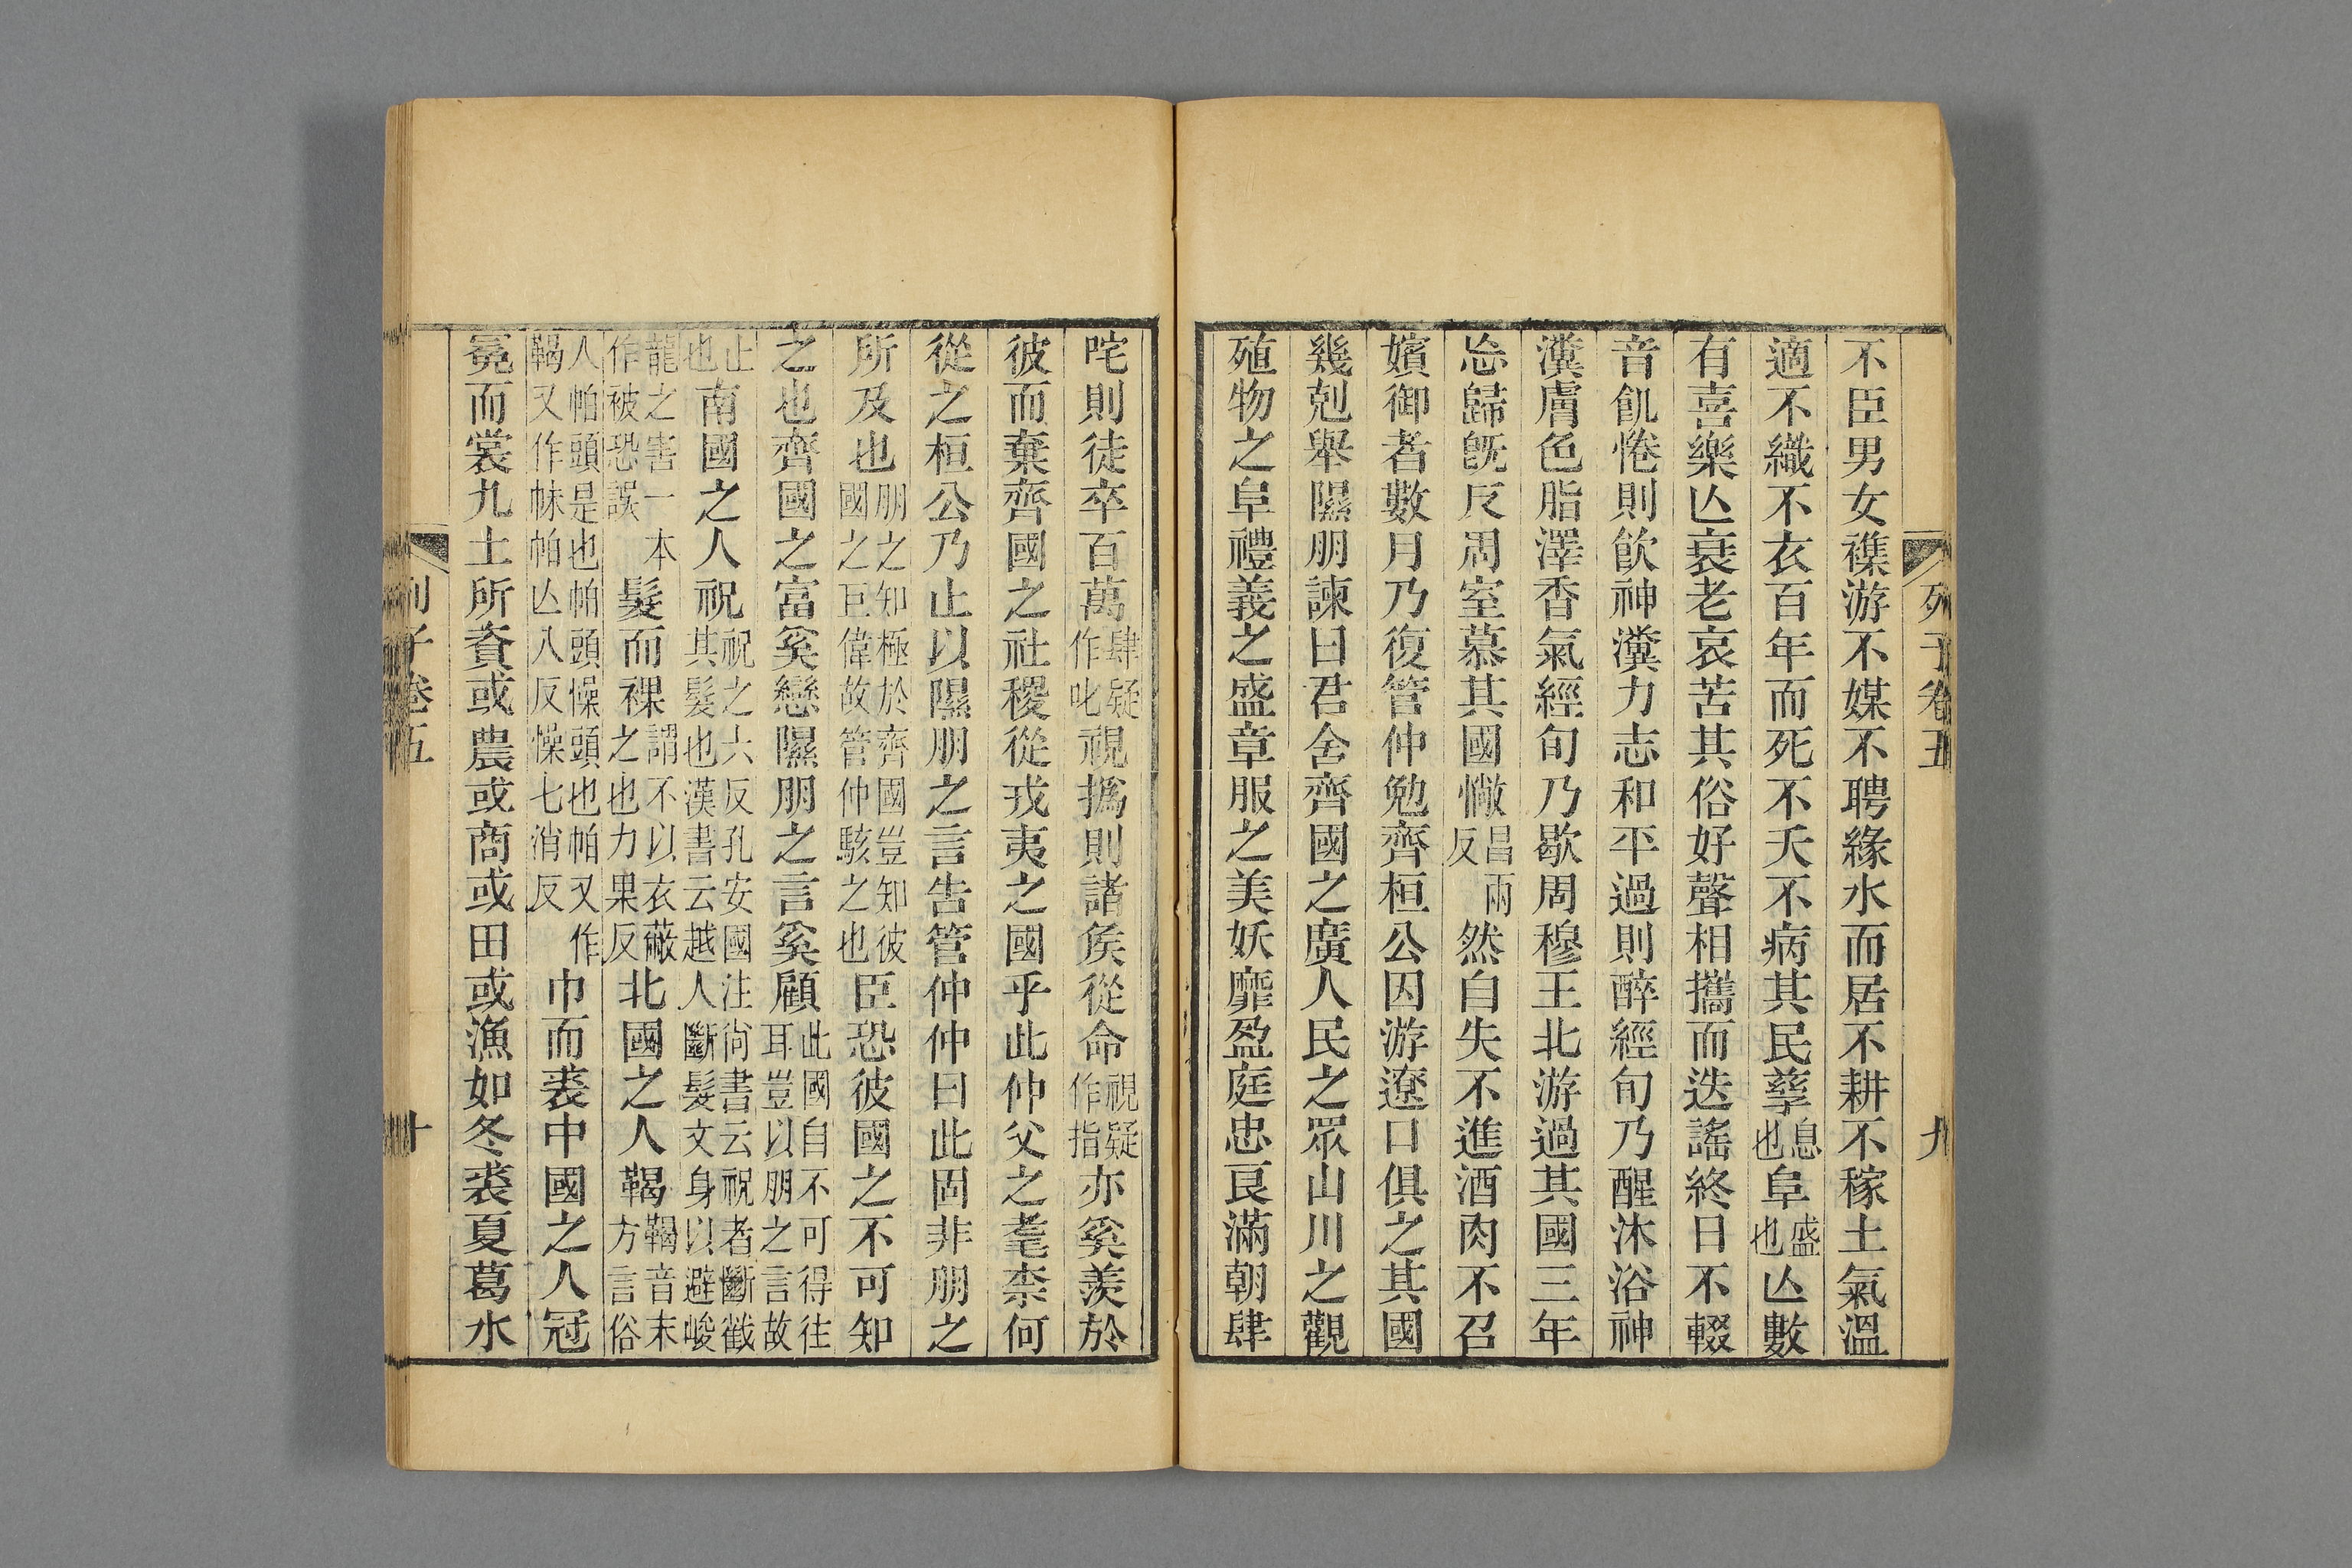 列子卷五
九
不臣男女襍游不媒不聘緣水而居不耕不稼土氣溫
適不織不衣百年而死不夭不病其民孳息也阜盛也亾數
有喜樂亾衰老哀苦其俗好聲相攜而迭謠終日不輟
音飢惓則飮神瀵力志和平過則醉經旬乃醒沐浴神
瀵膚色脂澤香氣經旬乃歇周穆王北游過其國三年
忘歸旣反周室慕其國㦂昌兩反然自失不進酒肉不召
嬪御者數月乃復管仲勉齊桓公因游遼口俱之其國
幾剋舉隰朋諫曰君舍齊國之廣人民之眾山川之觀
殖物之阜禮義之盛章服之美妖靡盈庭忠良滿朝肆
咤則徒卒百萬肆疑作叱視撝則諸侯從命視疑作指亦奚羨於
彼而棄齊國之社稷從戎夷之國乎此仲父之耄柰何
從之桓公乃止以隰朋之言告管仲仲曰此固非朋之
所及也朋之知極於齊國豈知彼國之巨偉故管仲駭之也臣恐彼國之不可知
之也齊國之富奚戀隰朋之言奚顧此國自不可得往耳豈以朋之言故
止也南國之人祝祝之六反孔安國注尙書云祝者斷截其髮也漢書云越人斷髮文身以避峻
龍之害一本作被恐誤髮而裸謂不以衣蔽之也力果反北國之人鞨鞨音末方言俗
人帕頭是也帕頭㡎頭也帕又作鞨又作帓帕亾八反㡎七消反巾而裘中國之人冠
冕而裳九土所資或農或商或田或漁如冬裘夏葛水
列子卷五
十